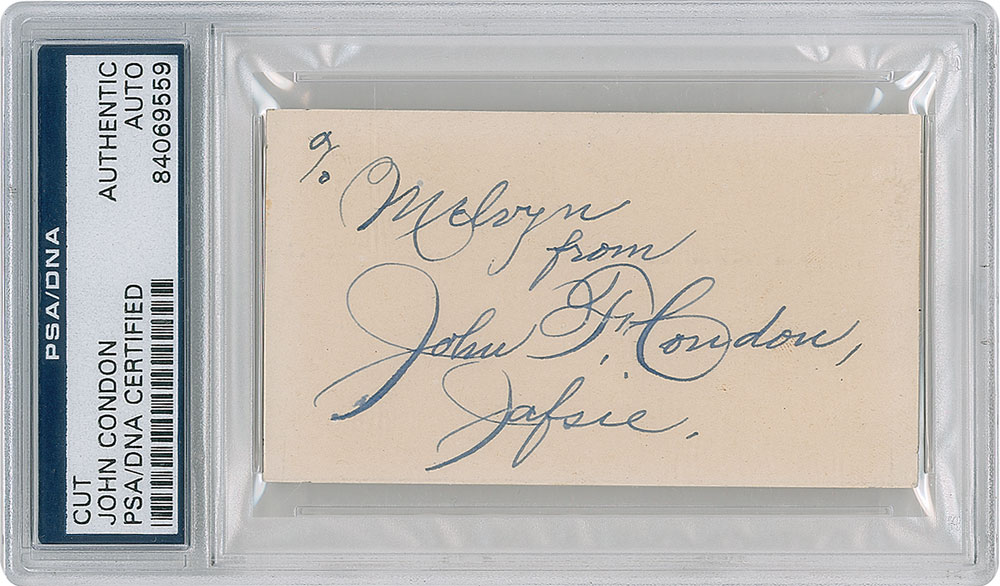 PSA/DNA
CUT
JOHN CONDON
PSA/DNA CERTIFIED
AUTHENTIC
AUTO
84069559
To
Melvyn
from
John F. Condon,
Jafsie.